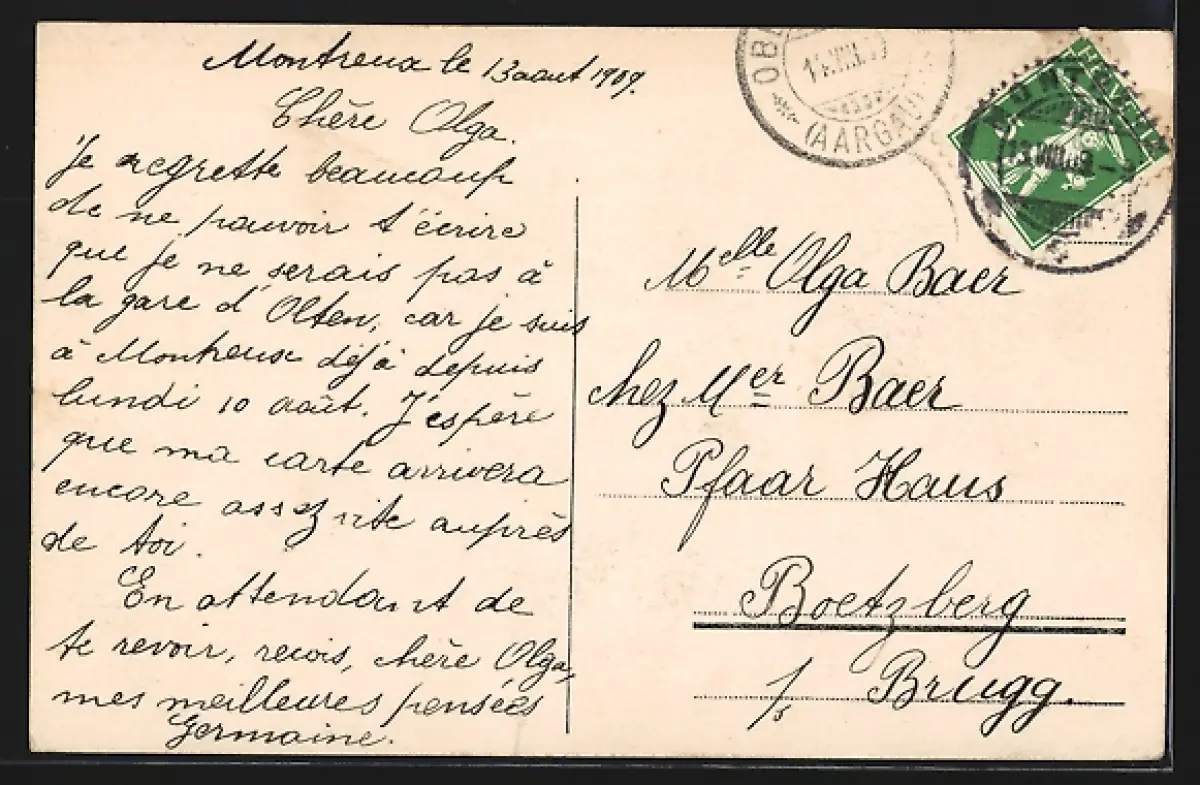 Montreux le 13 aout 1909.
Chère Olga.
Je regrette beaucoup
de ne pouvoir t'écrire
que je ne serais pas à
la gare d'Olten, car je suis
à Montreux déjà depuis
lundi 10 août. J'espère
que ma carte arrivera
encore assez vite auprès
de toi.
En attendant de
te revoir, reçois, chère Olga,
mes meilleures pensées
Germaine.
OB
(AARGAU)
HELVETIA
MONTREUX
13.VIII.09-9
Melle Olga Baer
chez Mer Baer
Pfaar Haus
Boetzberg
1/s Brugg.